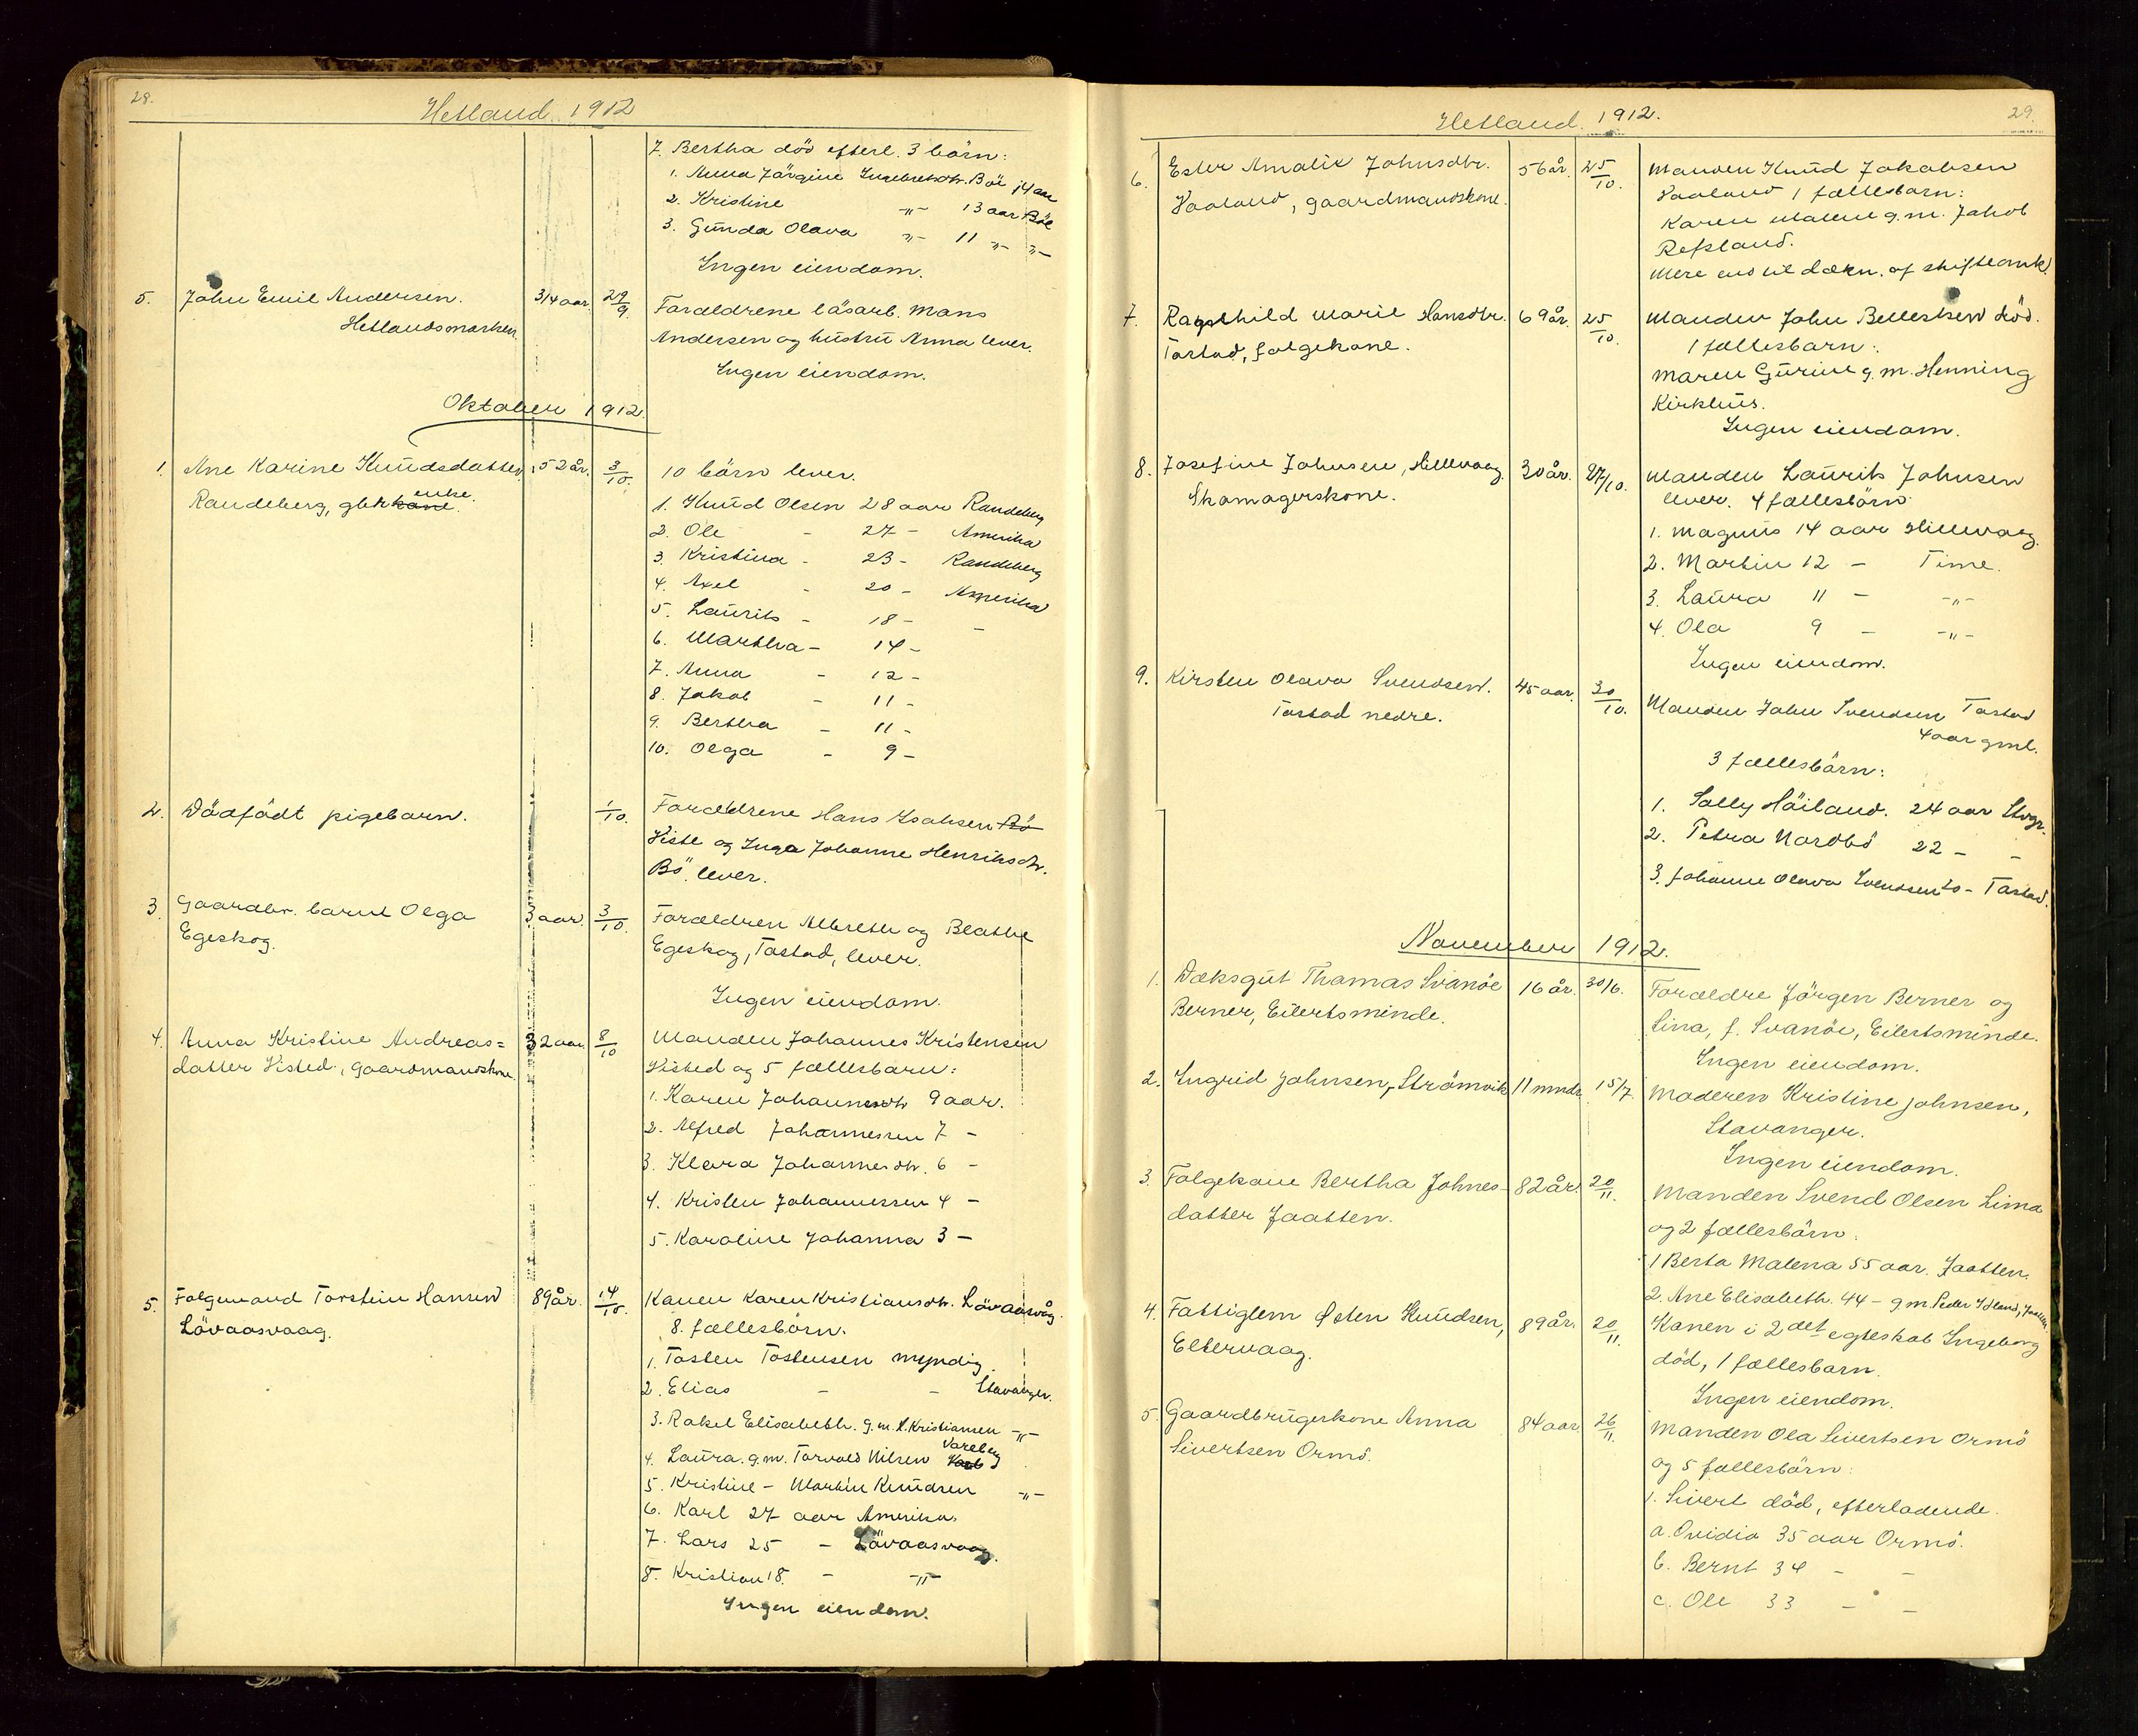 28.
Hetland 1912
7. Bertha död efterl. 3 börn:
1. Anna Järgine Ingebretsdtr. Böe 14 aar
2. Kristine -"- 13 aar Böe
3. Gunda Olava -"- 11 -"- -"-
Ingen eiendom.
5. John Emil Andersen. 3/4 aar. 29/9. Forældrene läsarb. Mons
Hetlandsmarken. Andersen og hustru Anna lever.
Ingen eiendom.
Oktober 1912.
1. Ane Karine Knudsdatter, 52 år. 3/10. 10 börn lever.
Randeberg, gbr kone enke.
1. Knud Olsen 28 aar Randeberg
2. Ole - 27 - Amerika
3. Kristina - 23 - Randeberg
4. Axel - 20 - Amerika
5. Laurits - 18 - -
6. Martha - 14 -
7. Anna - 12 -
8. Jakob - 11 -
9. Bertha - 11 -
10. Olga - 9 -
2. Dödfödt pigebarn. 1/10. Forældrene Hans Isaksen Bö
Viste og Inga Johanne Henriksdtr.
Bö. lever.
3. Gaardbr. barnet Olga 3 aar. 3/10. Forældren Albreth og Beathe
Egeskog. Egeskog, Tastad, lever.
Ingen eiendom.
4. Anna Kristine Andreas= 32 aar. 8/10 Manden Johannes Kristensen
datter Visted, gaardmandskone. Visted og 5 fællesbarn:
1. Karen Johannesdtr 9 aar.
2. Alfred Johannessen 7 -
3. Klara Johannesdtr. 6 -
4. Kristen Johannessen 4 -
5. Karoline Johanna 3 -
5. Folgemand Torstein Hansen 89 år. 14/10. Konen Karen Kristiansdtr. Lövaasvåg.
Lövaasvaag. 8. fællesbarn.
1. Tosten Tostensen myndig.
2. Elias - - Stavanger.
3. Rakel Elisabeth. g.m. A. Kristiansen -"-
4. Laura. g.m. Torvald Nilsen Vareberg
5. Kristine - Martin Knudsen -"-
6. Karl 27 aar Amerika.
7. Lars 25 - Lövaasvaag.
8. Kristian 18. - -"-
Ingen eiendom.
Hetland. 1912.
29.
6. Ester Amalie Johnsdtr. 56 år. 25/10. Manden Knud Jakobsen
Vaaland, gaardmandskone. Vaaland 1 fællesbarn:
Karen Malene g.m. Jakob
Refsland.
Mere end til dækn. af skifteomk.
7. Ragnhild Marie Hansdtr. 69 år. 25/10. Manden John Bellesen död.
Tastad, folgekone. 1 fællesbarn:
Maren Gurine g.m. Henning
Kirkhus.
Ingen eiendom.
8. Josefine Johnsen, Hillevaag. 30 år. 27/10. Manden Laurits Johnsen
Skomagerskone. lever. 4 fællesbörn
1. Magnus 14 aar Hillevaag.
2. Martin 12 - Time.
3. Laura 11 - -"-
4. Ola 9 - -"-
Ingen eiendom.
9. Kirsten Olava Svendsen. 45 aar. 30/10. Manden John Svendsen Tastad
Tastad nedre. 4 aar gml.
3 fællesbörn:
1. Solly Höiland. 24 aar Stvgr.
2. Petra Nordbö 22 - -
3. Johanne Olava Svendsen - Tastad.
November 1912.
1. Dæksgut Thomas Svanöe 16 år. 30/6. Forældre Jörgen Berner og
Berner, Eilertsminde. Lina, f. Svanöe, Eilertsminde.
Ingen eiendom.
2. Ingrid Johnsen, Strömvik 11 mndr. 15/7. Moderen Kristine Johnsen,
Stavanger.
Ingen eiendom.
3. Folgekone Bertha Johnes- 82 år. 20/11. Manden Svend Olsen Lima
datter Jaatten. og 2 fællesbörn.
1 Berta Malena 55 aar. Jaatten.
2. Ane Elisabeth. 44 - g.m. Peder Idland, Jaatten.
4. Fattiglem Osten Knudsen, 89 år. 20/11. Konen i 2det egteskab Ingeborg
Eltervaag. död, 1 fællesbarn.
Ingen eiendom.
5. Gaardbrugerkone Anna 84 aar. 26/11. Manden Ola Sivertsen Ormö
Sivertsen Ormö. og 5 fællesbörn:
1. Sivert död, efterladende.
a. Ovidia 35 aar Ormö.
b. Bernt 34 - -
c. Ole 33 - -